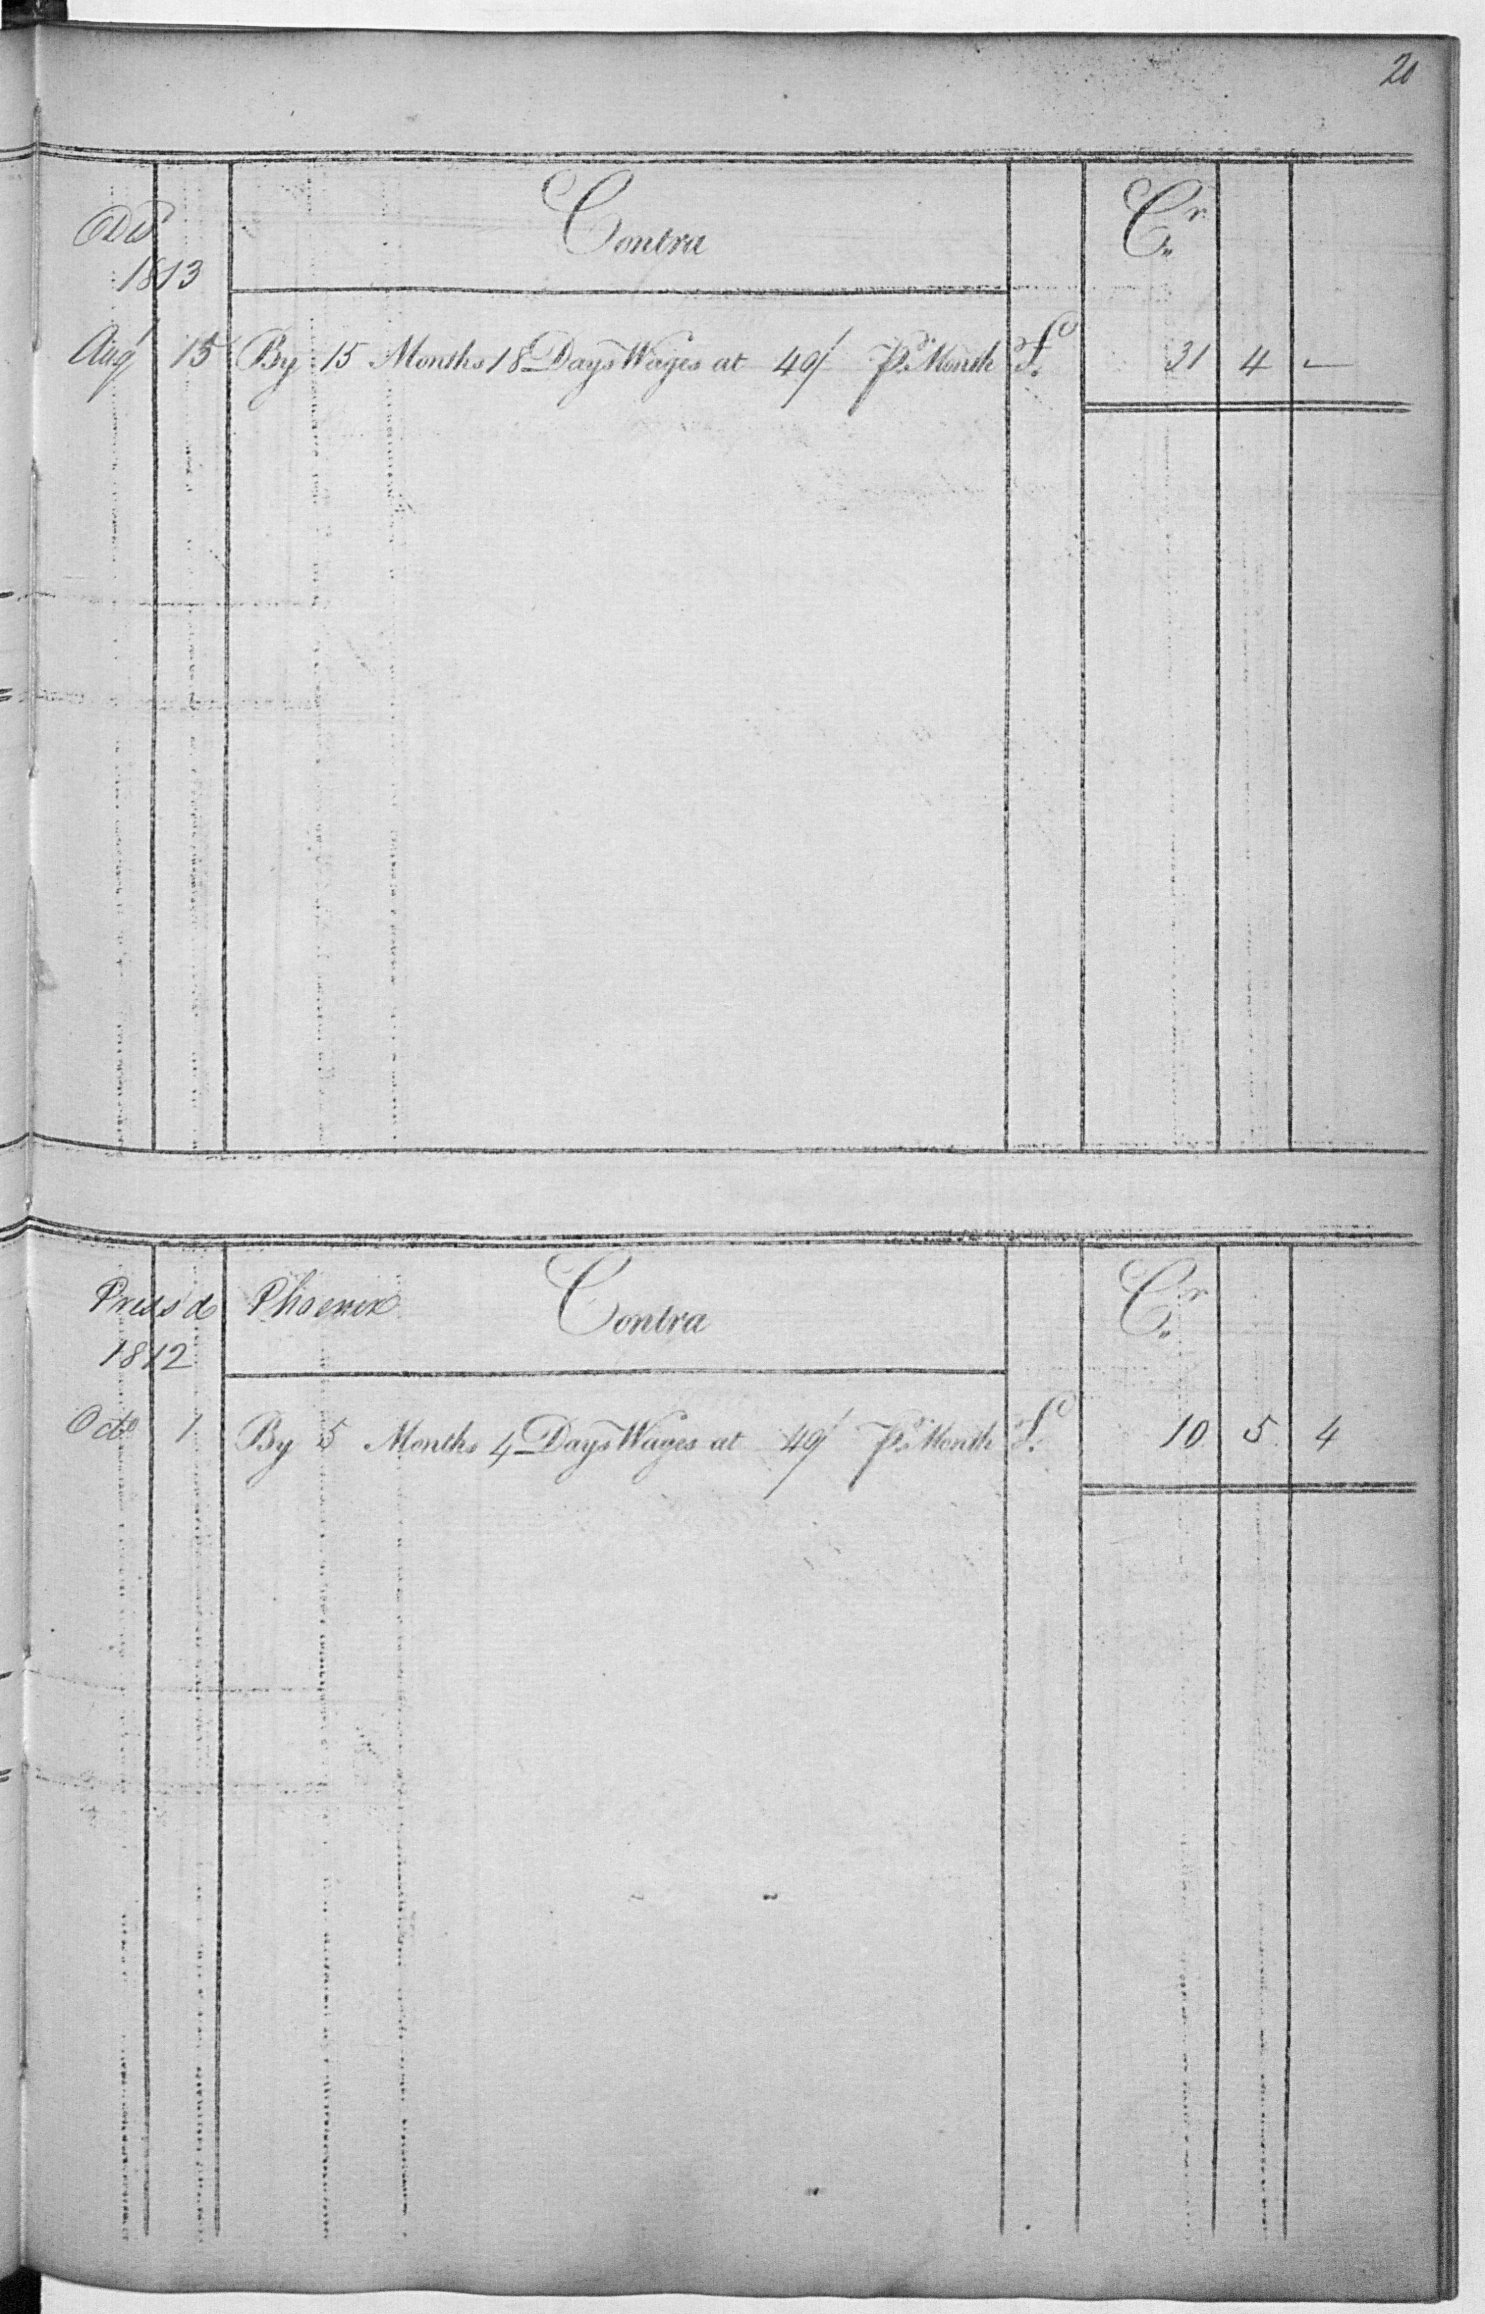 20
DD Contra Cr
1813
Augt 15 By 15 Months 18 Days Wages at 40/ Pr. Month £ 31 4 —
Press'd Phoenix Contra Cr
1812
Octo 1 By 5 Months 4 Days Wages at 40/ Pr. Month £ 10 5 4